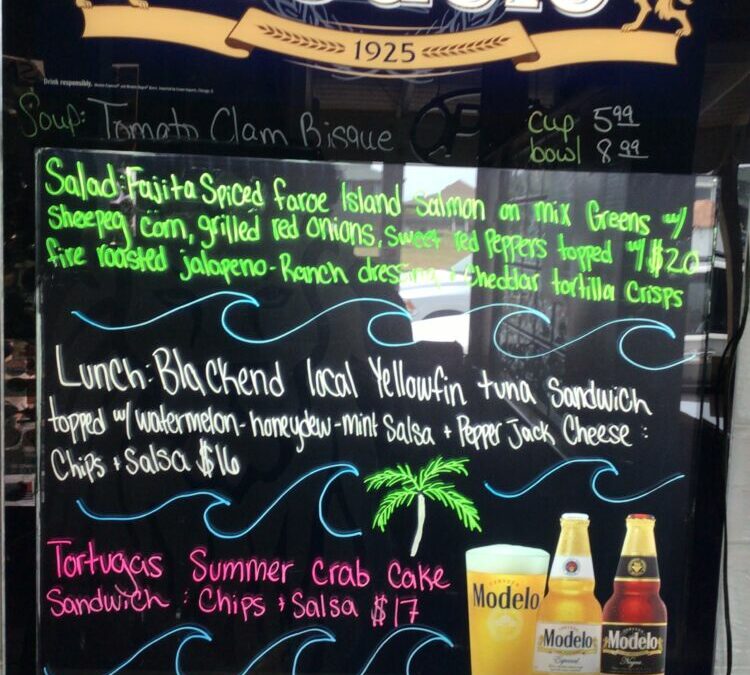 1925
Drink responsibly.
Soup: Tomato Clam Bisque cup 5.99
bowl 8.99
Salad: Fajita Spiced faroe Island salmon on mix Greens w/
sheepeg corn, grilled red onions, sweet red peppers topped w/ $20
fire roasted jalapeno-Ranch dressing + cheddar tortilla crisps
Lunch: Blackend local Yellowfin tuna sandwich
topped w/ watermelon-honeydew-mint salsa + Pepper Jack Cheese :
Chips + Salsa $16
Tortugas Summer crab cake
Sandwich : Chips + Salsa $17
Modelo
Modelo
Especial
Modelo
Negra